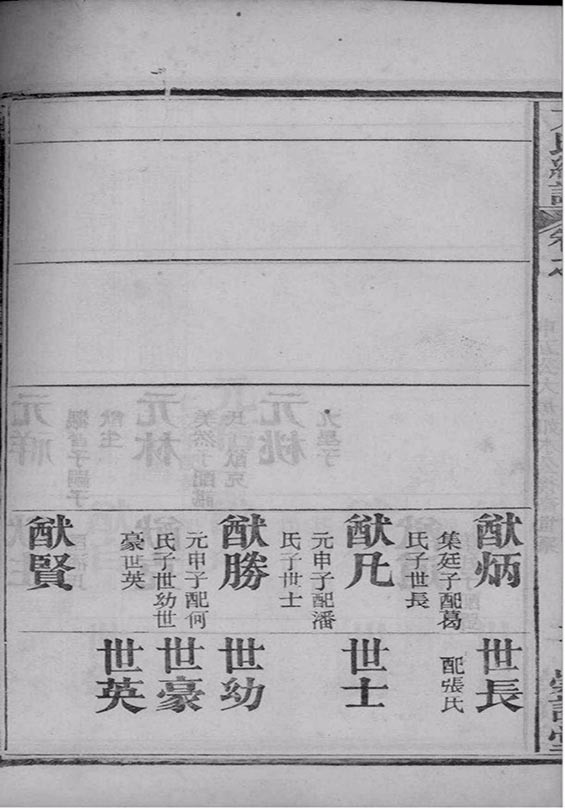 氏總譜
猷炳
集廷子配葛
氏子世長
猷凡
元申子配潘
氏子世士
猷勝
元申子配何
氏子世幼世
豪世英
猷賢
世長
配張氏
世士
世幼
世豪
世英